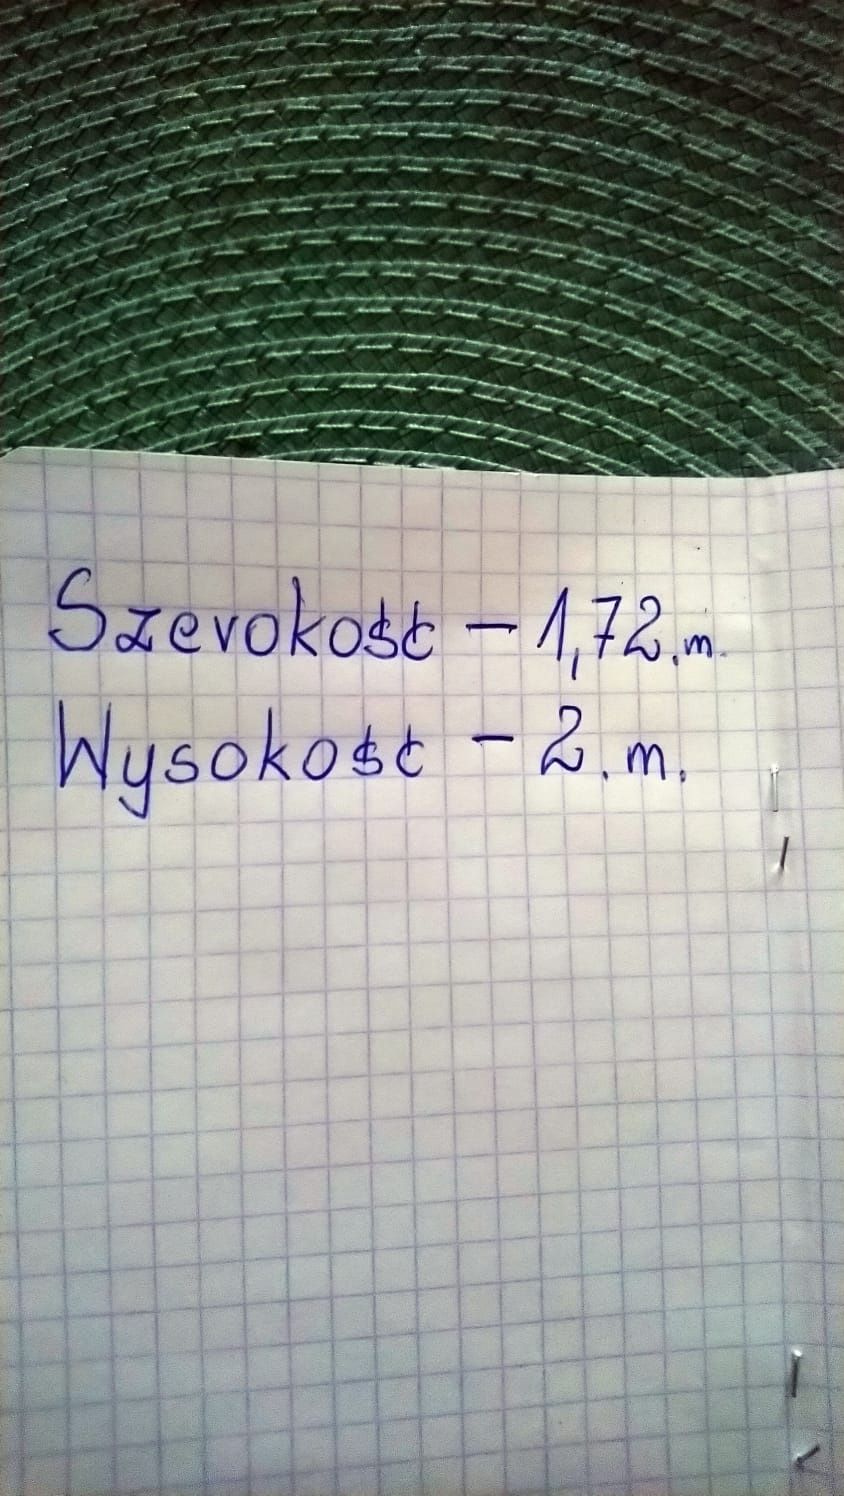 Szerokość – 1,72.m.
Wysokość – 2.m.